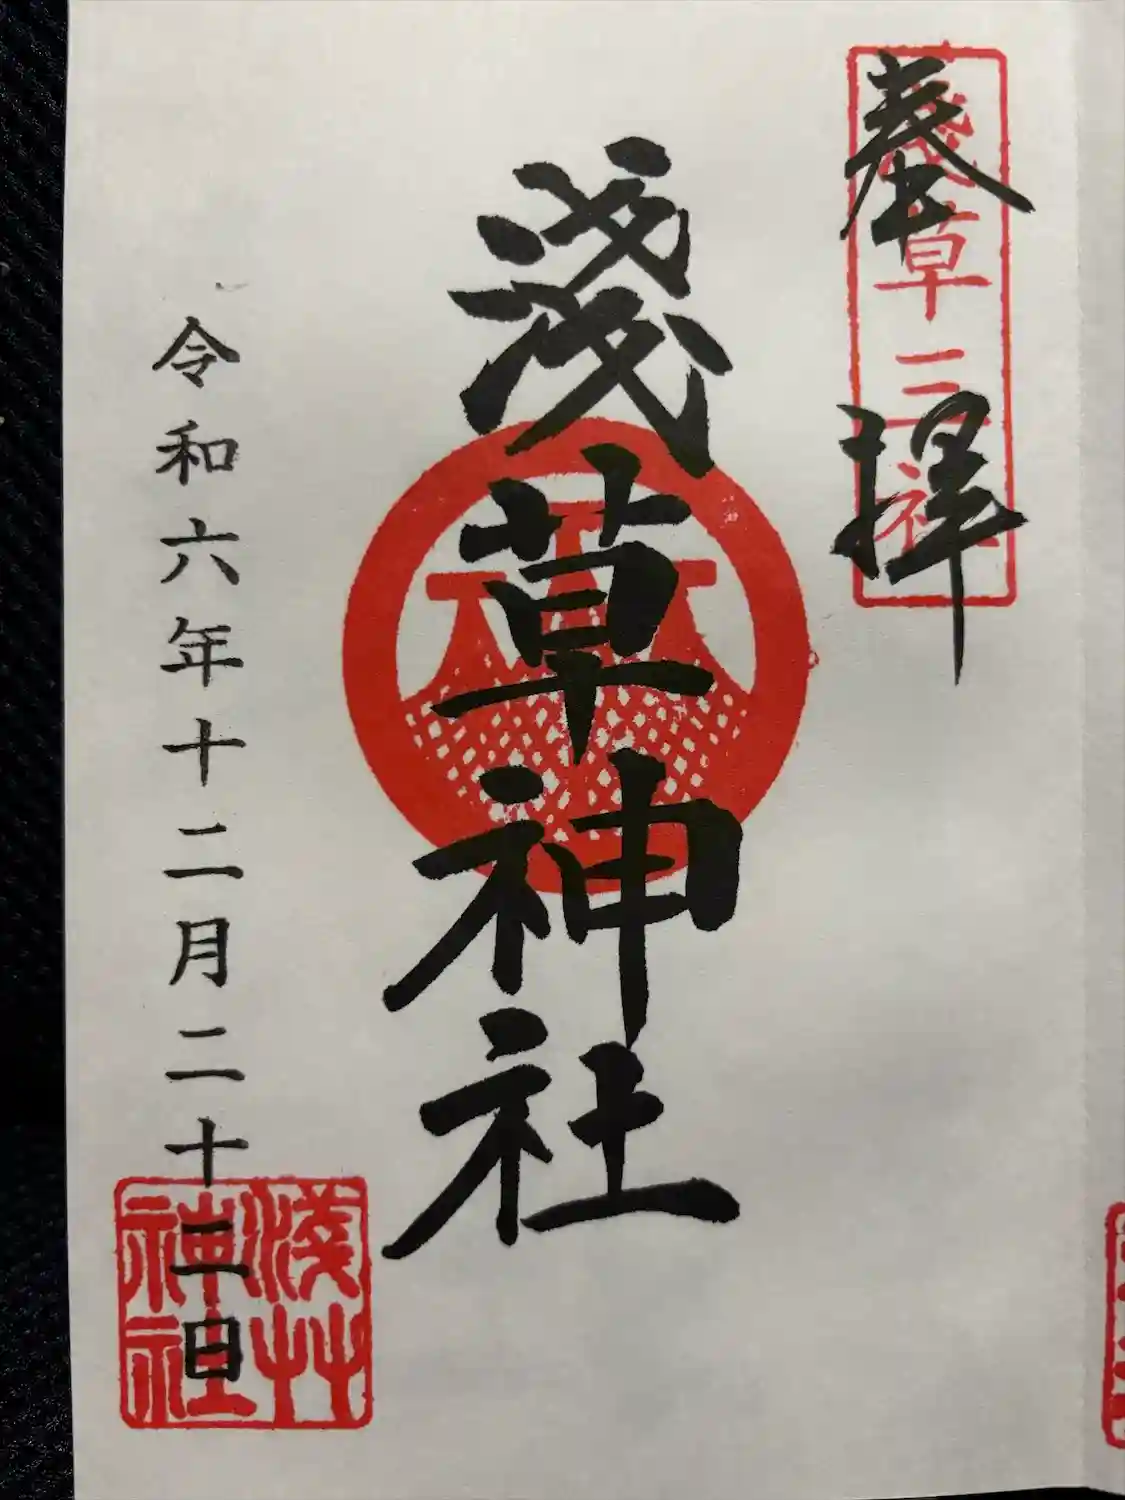 奉拝
淺草三社
淺草神社
令和六年十二月二十二日
淺艸
神社